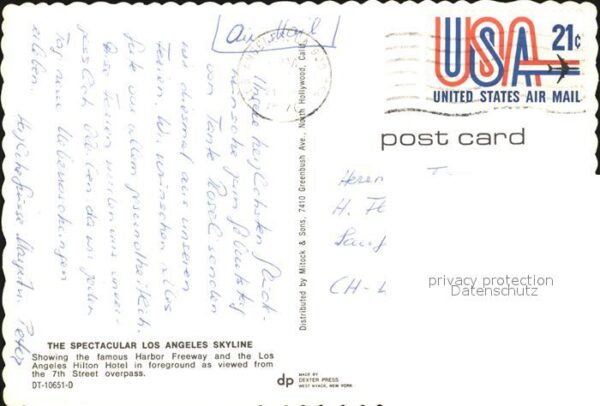 (Air Mail)
USA 21c
UNITED STATES AIR MAIL
post card
Herrn
H.
CH-
privacy protection
Datenschutz
Distributed by Mitock & Sons, 7410 Greenbush Ave., North Hollywood, Calif.
herzlichsten Glück-
wünsche zum Geburtstag
von Tante Rosel senden
wir diesmal aus unseren
Ferien. Wir wünschen alles
Gute vor allem gesundheitlich.
Ferien werden uns unver-
gesslich bleiben da wir jeden
Tag neue Ueberraschungen
erleben
Peter
THE SPECTACULAR LOS ANGELES SKYLINE
Showing the famous Harbor Freeway and the Los
Angeles Hilton Hotel in foreground as viewed from
the 7th Street overpass.
DT-10651-D
dp
MADE BY
DEXTER PRESS
WEST NYACK, NEW YORK